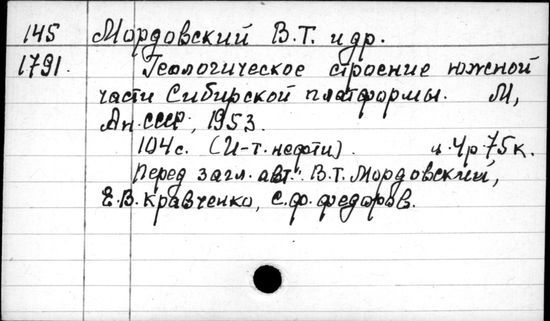 145 Мордовский В.Т. и др.
1791. Геологическое строение южной
части Сибирской платформы. М,
Ан СССР, 1953.
104 с. (И-т. нефти). ц. 4 р 75 к.
Перед загл. авт.: В.Т. Мордовский,
Е.В. Кравченко, С.Ф. Федоров.